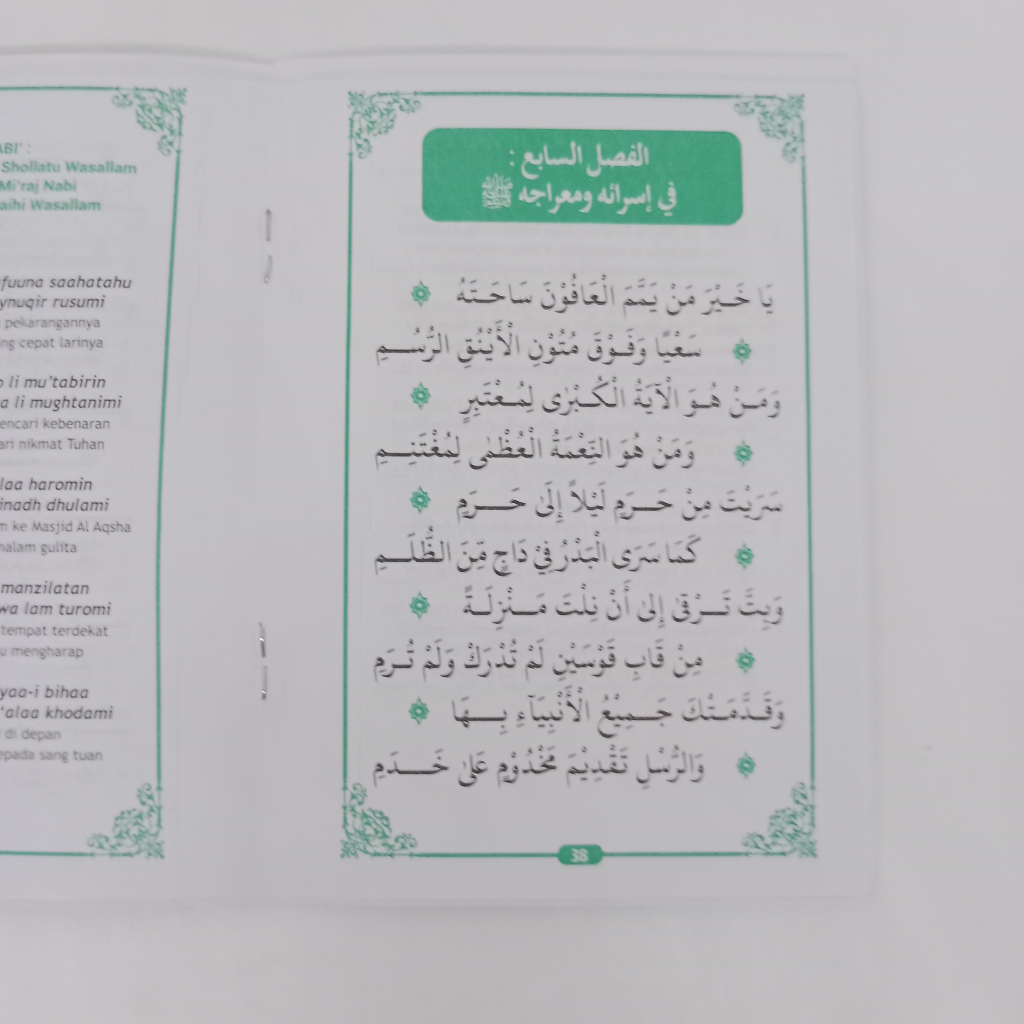 الفصل السابع :
في إسرائه ومعراجه ﷺ
يَا خَيْرَ مَنْ يَمَّمَ الْعَافُوْنَ سَاحَتَهُ
سَعْيًا وَفَوْقَ مُتُوْنِ الْأَيْنُقِ الرُّسُمِ
وَمَنْ هُوَ الْآيَةُ الْكُبْرٰى لِمُعْتَبِرٍ
وَمَنْ هُوَ النِّعْمَةُ الْعُظْمٰى لِمُغْتَنِمِ
سَرَيْتَ مِنْ حَرَمٍ لَيْلاً إِلَىٰ حَرَمٍ
كَمَا سَرَى الْبَدْرُ فِيْ دَاجٍ مِّنَ الظُّلَمِ
وَبِتَّ تَرْقىٰ إِلىٰ أَنْ نِلْتَ مَنْزِلَةً
مِنْ قَابِ قَوْسَيْنِ لَمْ تُدْرَكْ وَلَمْ تُرَمِ
وَقَدَّمَتْكَ جَمِيْعُ الْأَنْبِيَآءِ بِهَا
وَالرُّسْلِ تَقْدِيْمَ مَخْدُوْمٍ عَلىٰ خَدَمِ
38
ABI' :
Shollatu Wasallam
Mi'raj Nabi
aihi Wasallam
fuuna saahatahu
ynuqir rusumi
pekarangannya
ng cepat larinya
li mu'tabirin
a li mughtanimi
encari kebenaran
ari nikmat Tuhan
laa haromin
inadh dhulami
m ke Masjid Al Aqsha
malam gulita
manzilatan
wa lam turomi
tempat terdekat
u mengharap
yaa-i bihaa
'alaa khodami
di depan
epada sang tuan